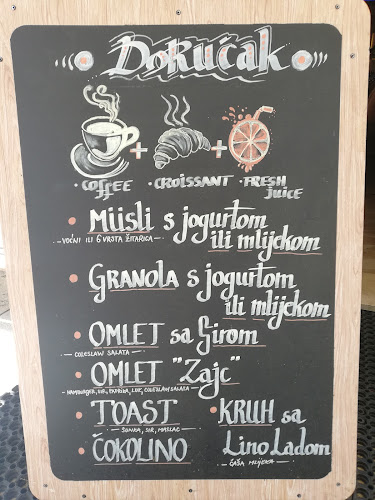 Doručak
+ +
• COFFEE • CROISSANT • FRESH JUICE
• Müsli s jogurtom
ili mlijekom
— VOĆNI ILI 6 VRSTA ŽITARICA —
• GRANOLA s jogurtom
ili mlijekom
• OMLET sa Sirom
— COLESLAW SALATA —
• OMLET "Zajc"
— HAMBURGER, SIR, PAPRIKA, LUK, COLESLAW SALATA —
• TOAST
— ŠUNKA, SIR, MASLAC —
• ČOKOLINO
• KRUH sa
Lino Ladom
— ČAŠA MLIJEKA —